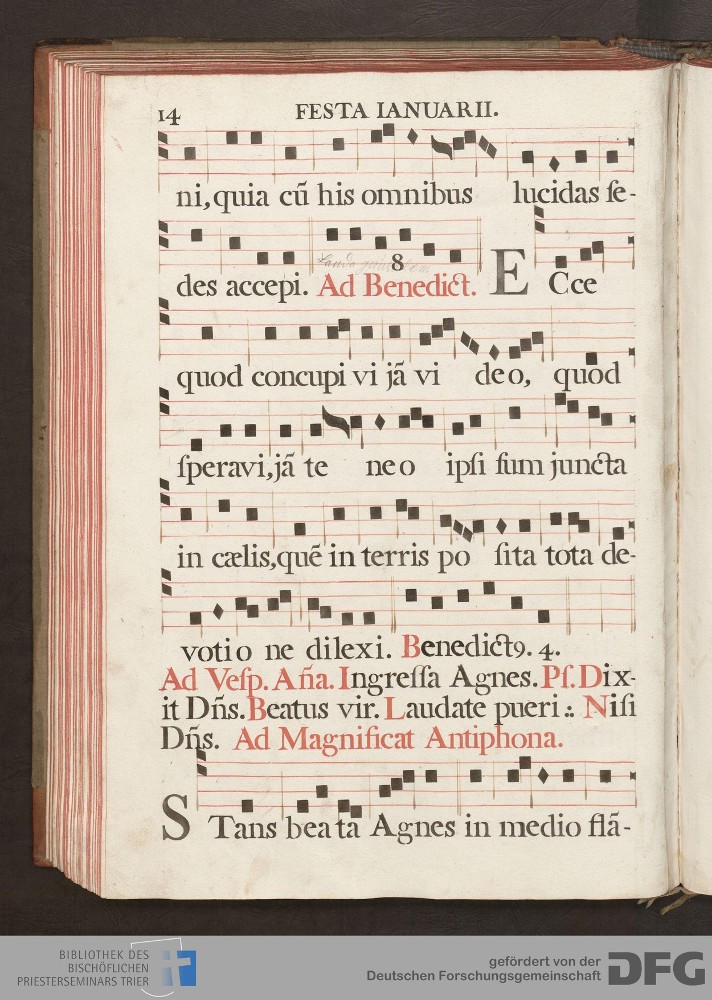 14 FESTA IANUARII.
ni, quia cũ his omnibus lucidas ſe-
8
des accepi. Ad Benedict. E Cce
quod concupi vi jã vi deo, quod
ſperavi, jã te neo ipſi ſum juncta
in cælis, quẽ in terris po ſita tota de-
votio ne dilexi. Benedict9. 4.
Ad Veſp. Aña. Ingreſſa Agnes. Pſ. Dix-
it Dñs. Beatus vir. Laudate pueri :. Niſi
Dñs. Ad Magnificat Antiphona.
S Tans beata Agnes in medio flã-
BIBLIOTHEK DES
BISCHÖFLICHEN
PRIESTERSEMINARS TRIER
gefördert von der
Deutschen Forschungsgemeinschaft DFG